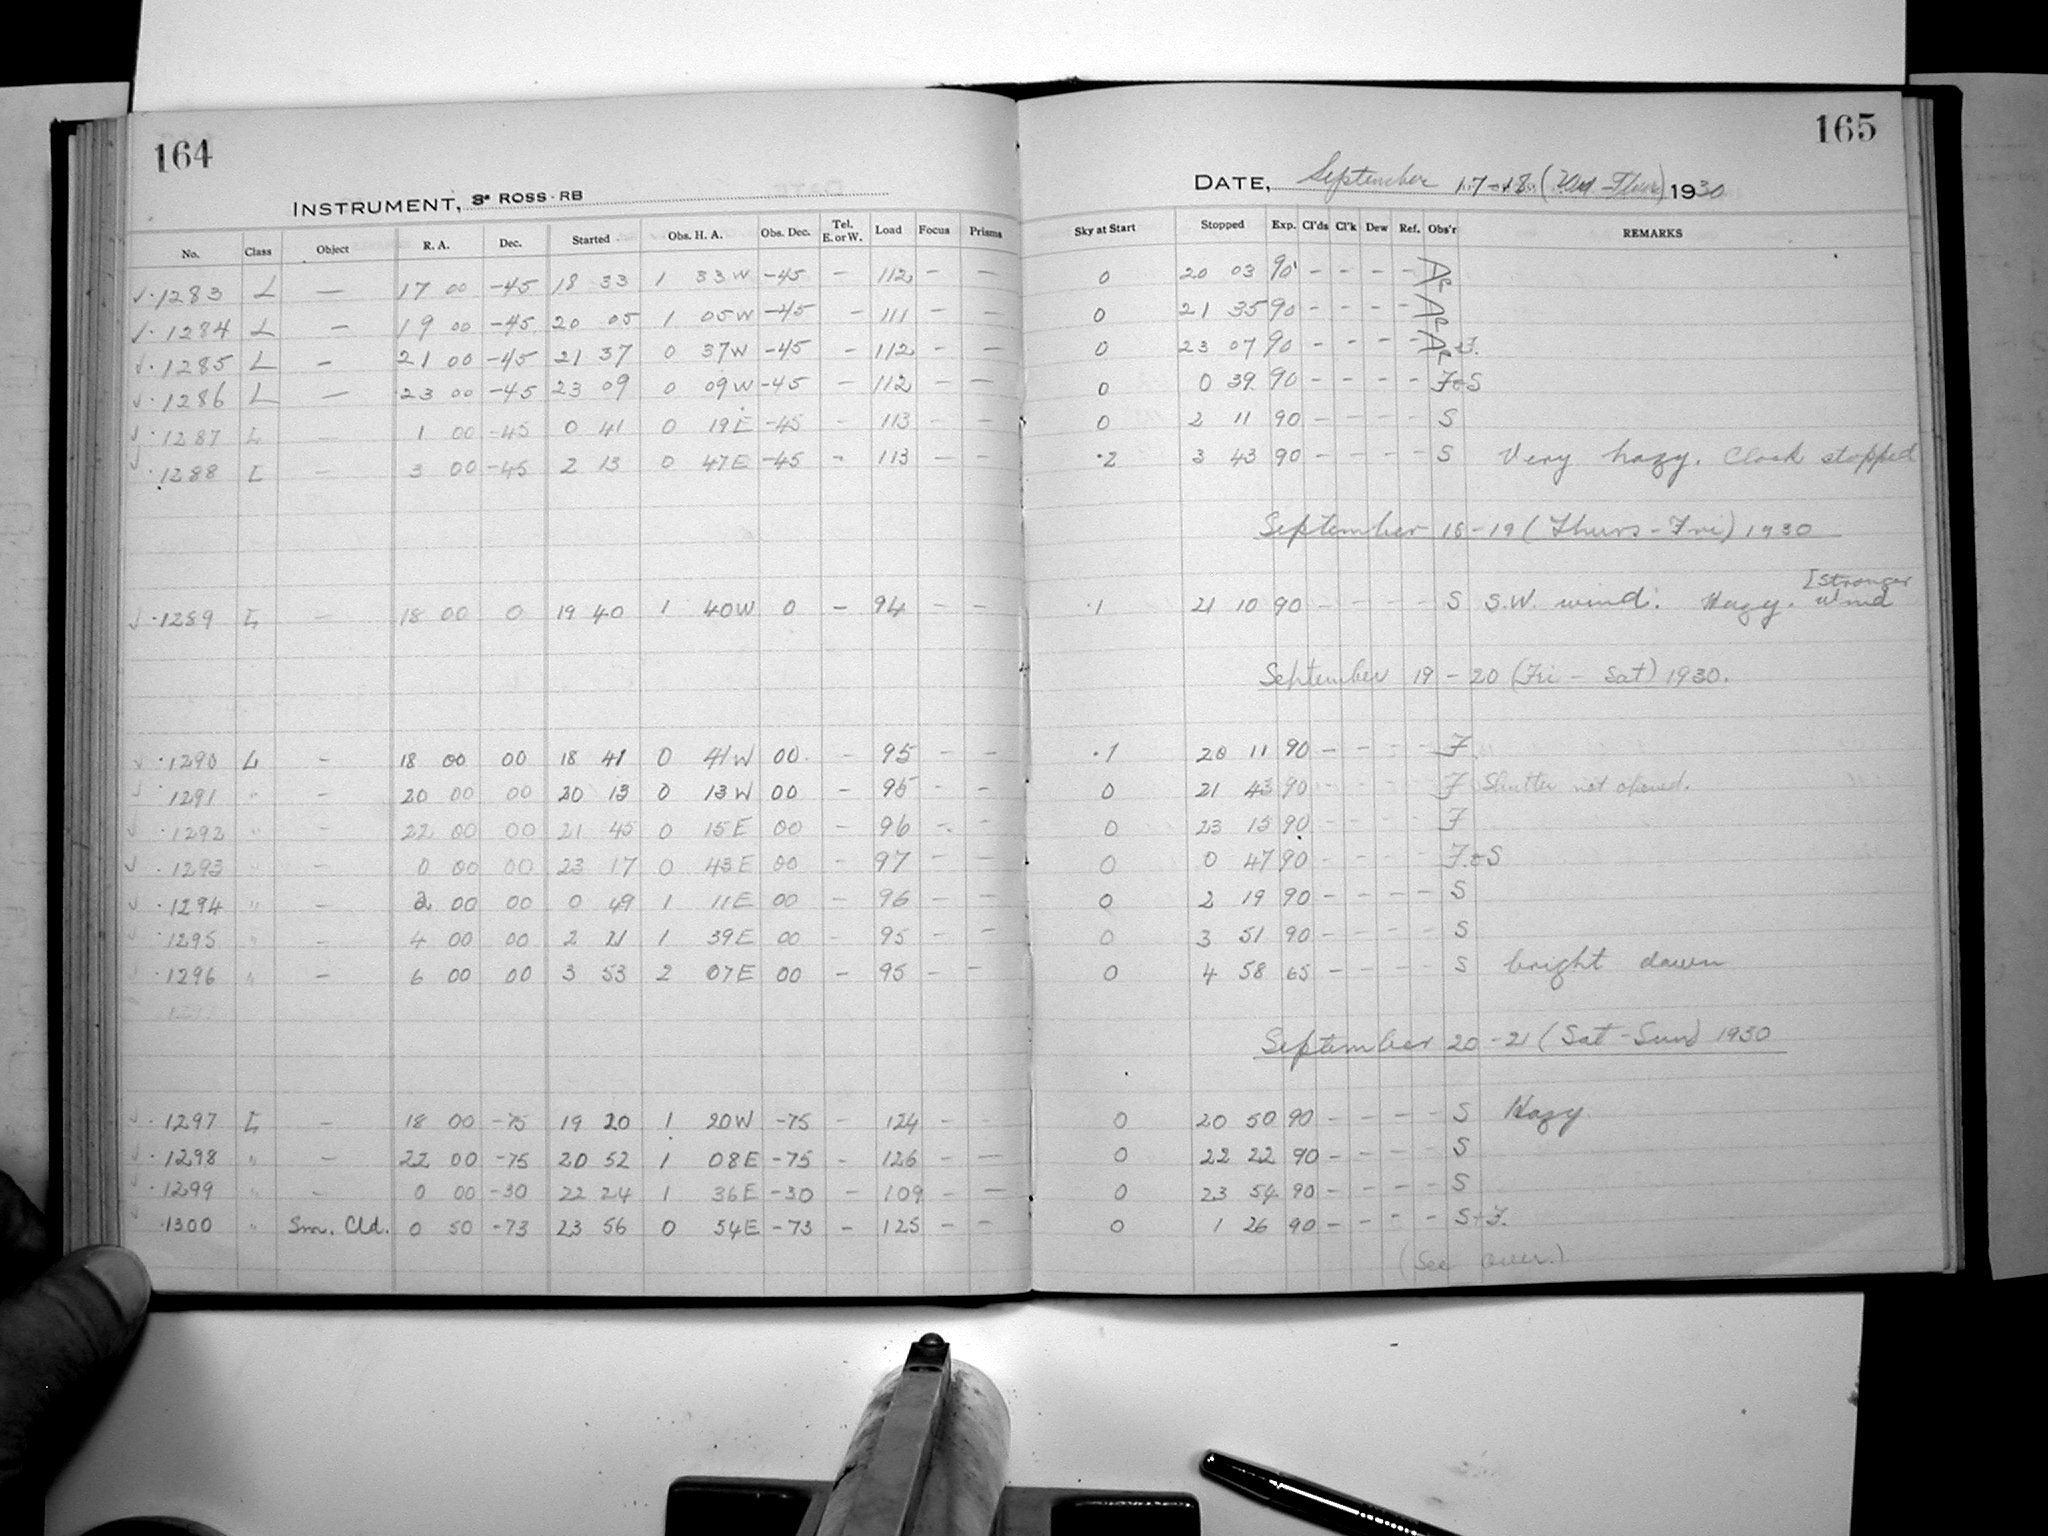 164
INSTRUMENT, 3" ROSS-RB
No. Class Object R. A. Dec. Started Obs. H. A. Obs. Dec. Tel. E. or W. Load Focus Prisms
√ · 1283 L — 17 00 -45 18 33 1 33W -45 — 112 — —
√ · 1284 L — 19 00 -45 20 05 1 05W -45 — 111 — —
√ · 1285 L — 21 00 -45 21 37 0 37W -45 — 112 — —
√ · 1286 L — 23 00 -45 23 09 0 09W -45 — 112 — —
√ · 1287 L — 1 00 -45 0 41 0 19E -45 — 113 — —
√ · 1288 L — 3 00 -45 2 13 0 47E -45 — 113 — —
√ · 1289 L — 18 00 0 19 40 1 40W 0 — 94 — —
√ · 1290 L — 18 00 00 18 41 0 41W 00 — 95 — —
√ · 1291 " — 20 00 00 20 13 0 13W 00 — 95 — —
√ · 1292 " — 22 00 00 21 45 0 15E 00 — 96 — —
√ · 1293 " — 0 00 00 23 17 0 43E 00 — 97 — —
√ · 1294 " — 2 00 00 0 49 1 11E 00 — 96 — —
√ · 1295 " — 4 00 00 2 21 1 39E 00 — 95 — —
√ · 1296 " — 6 00 00 3 53 2 07E 00 — 95 — —
1297
√ · 1297 L — 18 00 -75 19 20 1 20W -75 — 124 — —
√ · 1298 " — 22 00 -75 20 52 1 08E -75 — 126 — —
√ · 1299 " — 0 00 -30 22 24 1 36E -30 — 109 — —
√ · 1300 " Sm. Cld. 0 50 -73 23 56 0 54E -73 — 125 — —
165
DATE, September 17-18 (Wed-Thur) 1930
Sky at Start Stopped Exp. Cl'ds Cl'k Dew Ref. Obs'r REMARKS
0 20 03 90' — — — —
0 21 35 90 — — — —
0 23 07 90 — — — —
0 0 39 90 — — — — F+S
0 2 11 90 — — — — S
·2 3 43 90 — — — — S Very hazy. Clock stopped
September 18-19 (Thurs-Fri) 1930
·1 21 10 90 — — — — S S.W. wind. Hazy. [Stronger wind
September 19-20 (Fri-Sat) 1930.
·1 20 11 90 — — — — F
0 21 43 90 — — — — F Shutter not opened.
0 23 15 90 — — — — F
0 0 47 90 — — — — F+S
0 2 19 90 — — — — S
0 3 51 90 — — — — S
0 4 58 65 — — — — S bright dawn
September 20-21 (Sat-Sun) 1930
0 20 50 90 — — — — S Hazy
0 22 22 90 — — — — S
0 23 54 90 — — — — S
0 1 26 90 — — — — S+F.
(See over.)